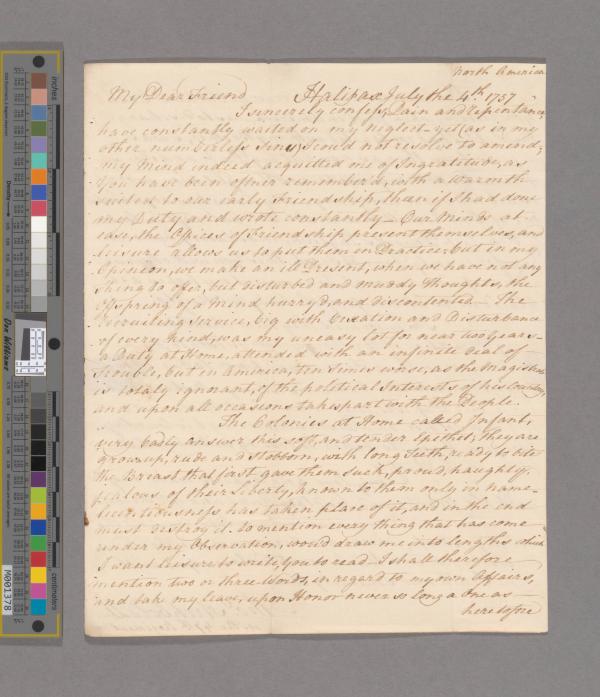 North America
My Dear Friend Halifax July the 4th. 1757
I sincerely confess, Pain and Repentance,
have constantly waited on my neglect - yet (as in my
other numberless Sins) I could not resolve to amend;
my Mind indeed acquitted me of Ingratitude, as
You have been oftner remember'd, with a warmth
suited to our early Friendship, than if I had done
my Duty and wrote constantly - Our Minds at
ease, the Offices of Friendship present themselves, and
leisure allows us to put them in Practice; but in my
Opinion, we make an ill Present, when we have not any
thing to offer, but disturbed and muddy Thoughts, the
Offspring of a Mind hurry'd, and discontented - The
Recruiting Service, big with Vexation and Disturbance
of every kind, was my uneasy lot for near two Years -
a Duty at Home, attended with an infinite deal of
Trouble, but in America, ten Times worse, as the Magistrate
is totaly ignorant, of the political Interests of his Country,
and upon all occasions takes part with the People.
The Colonies at Home called Infant,
very badly answer this soft, and tender Epithet; they are
grown up, rude and Stobborn, with long Teeth, ready to bite
the Breast that first gave them Suck, proud, haughty,
jealous of their Liberty, known to them only in name -
licentiousness has taken place of it, and in the end
must destroy it. to mention every thing that has come
under my Observation, wou'd draw me into lengths which
I want leisure to write, You to read - I shall therefore
mention two or three Words, in regard to my own Affairs,
and take my leave, upon Honor never so long a One as -
heretofore
inches
centimetres
Don Williams
M001378